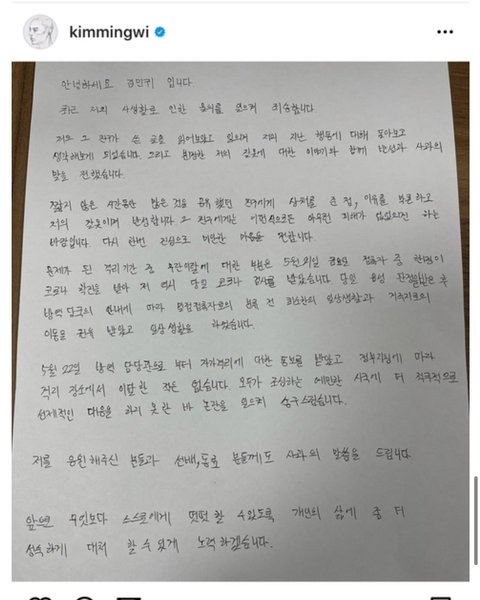 kimmingwi
안녕하세요 김민귀 입니다.
최근 저의 사생활로 인한 논의를 일으켜 죄송합니다.
저는 그 친구가 쓴 글을 읽어보았고 있으며 저의 지난 행동에 대해 돌아보고
생각해보게 되었습니다. 그리고 분명한 저의 잘못에 대한 이야기와 함께 반성과 사과의
말을 전했습니다.
짧지 않은 시간동안 많은 것을 공유했던 친구에게 상처를 준 점, 이유를 부론하고
저의 잘못이며 반성합니다. 그 친구에게는 어떤식으로든 아무런 피해가 없었으면 하는
바람입니다. 다시 한번 진심으로 미안한 마음을 전합니다.
문제가 된 격리기간 중 무단이탈에 대한 부분은 5월 21일 금요일 접촉자 중 한명이
코로나 확진을 받아 저 역시 당일 코로나 검사를 받았습니다. 당일 음성 판정을 받은 후
방역 당국의 안내에 따라 밀접접촉자로의 분류 전 최소한의 일상생활과 거주지로의
이동을 권유 받았고 일상생활을 하였습니다.
5월 22일 방역 담당관으로 부터 자가격리에 대한 통보를 받았고 정부지침에 따라
격리 장소에서 이탈한 적은 없습니다. 모두가 조심하는 예민한 시국에 더 적극적으로
선제적인 대응을 하지 못한 바 논란을 일으켜 송구스럽습니다.
저를 응원해주신 분들과 선배, 동료 분들께도 사과의 말씀을 드립니다
앞으로 무엇보다 스스로에게 떳떳할 수 있도록 개인의 삶에 좀 더
성숙하게 대처 할 수 있게 노력하겠습니다.